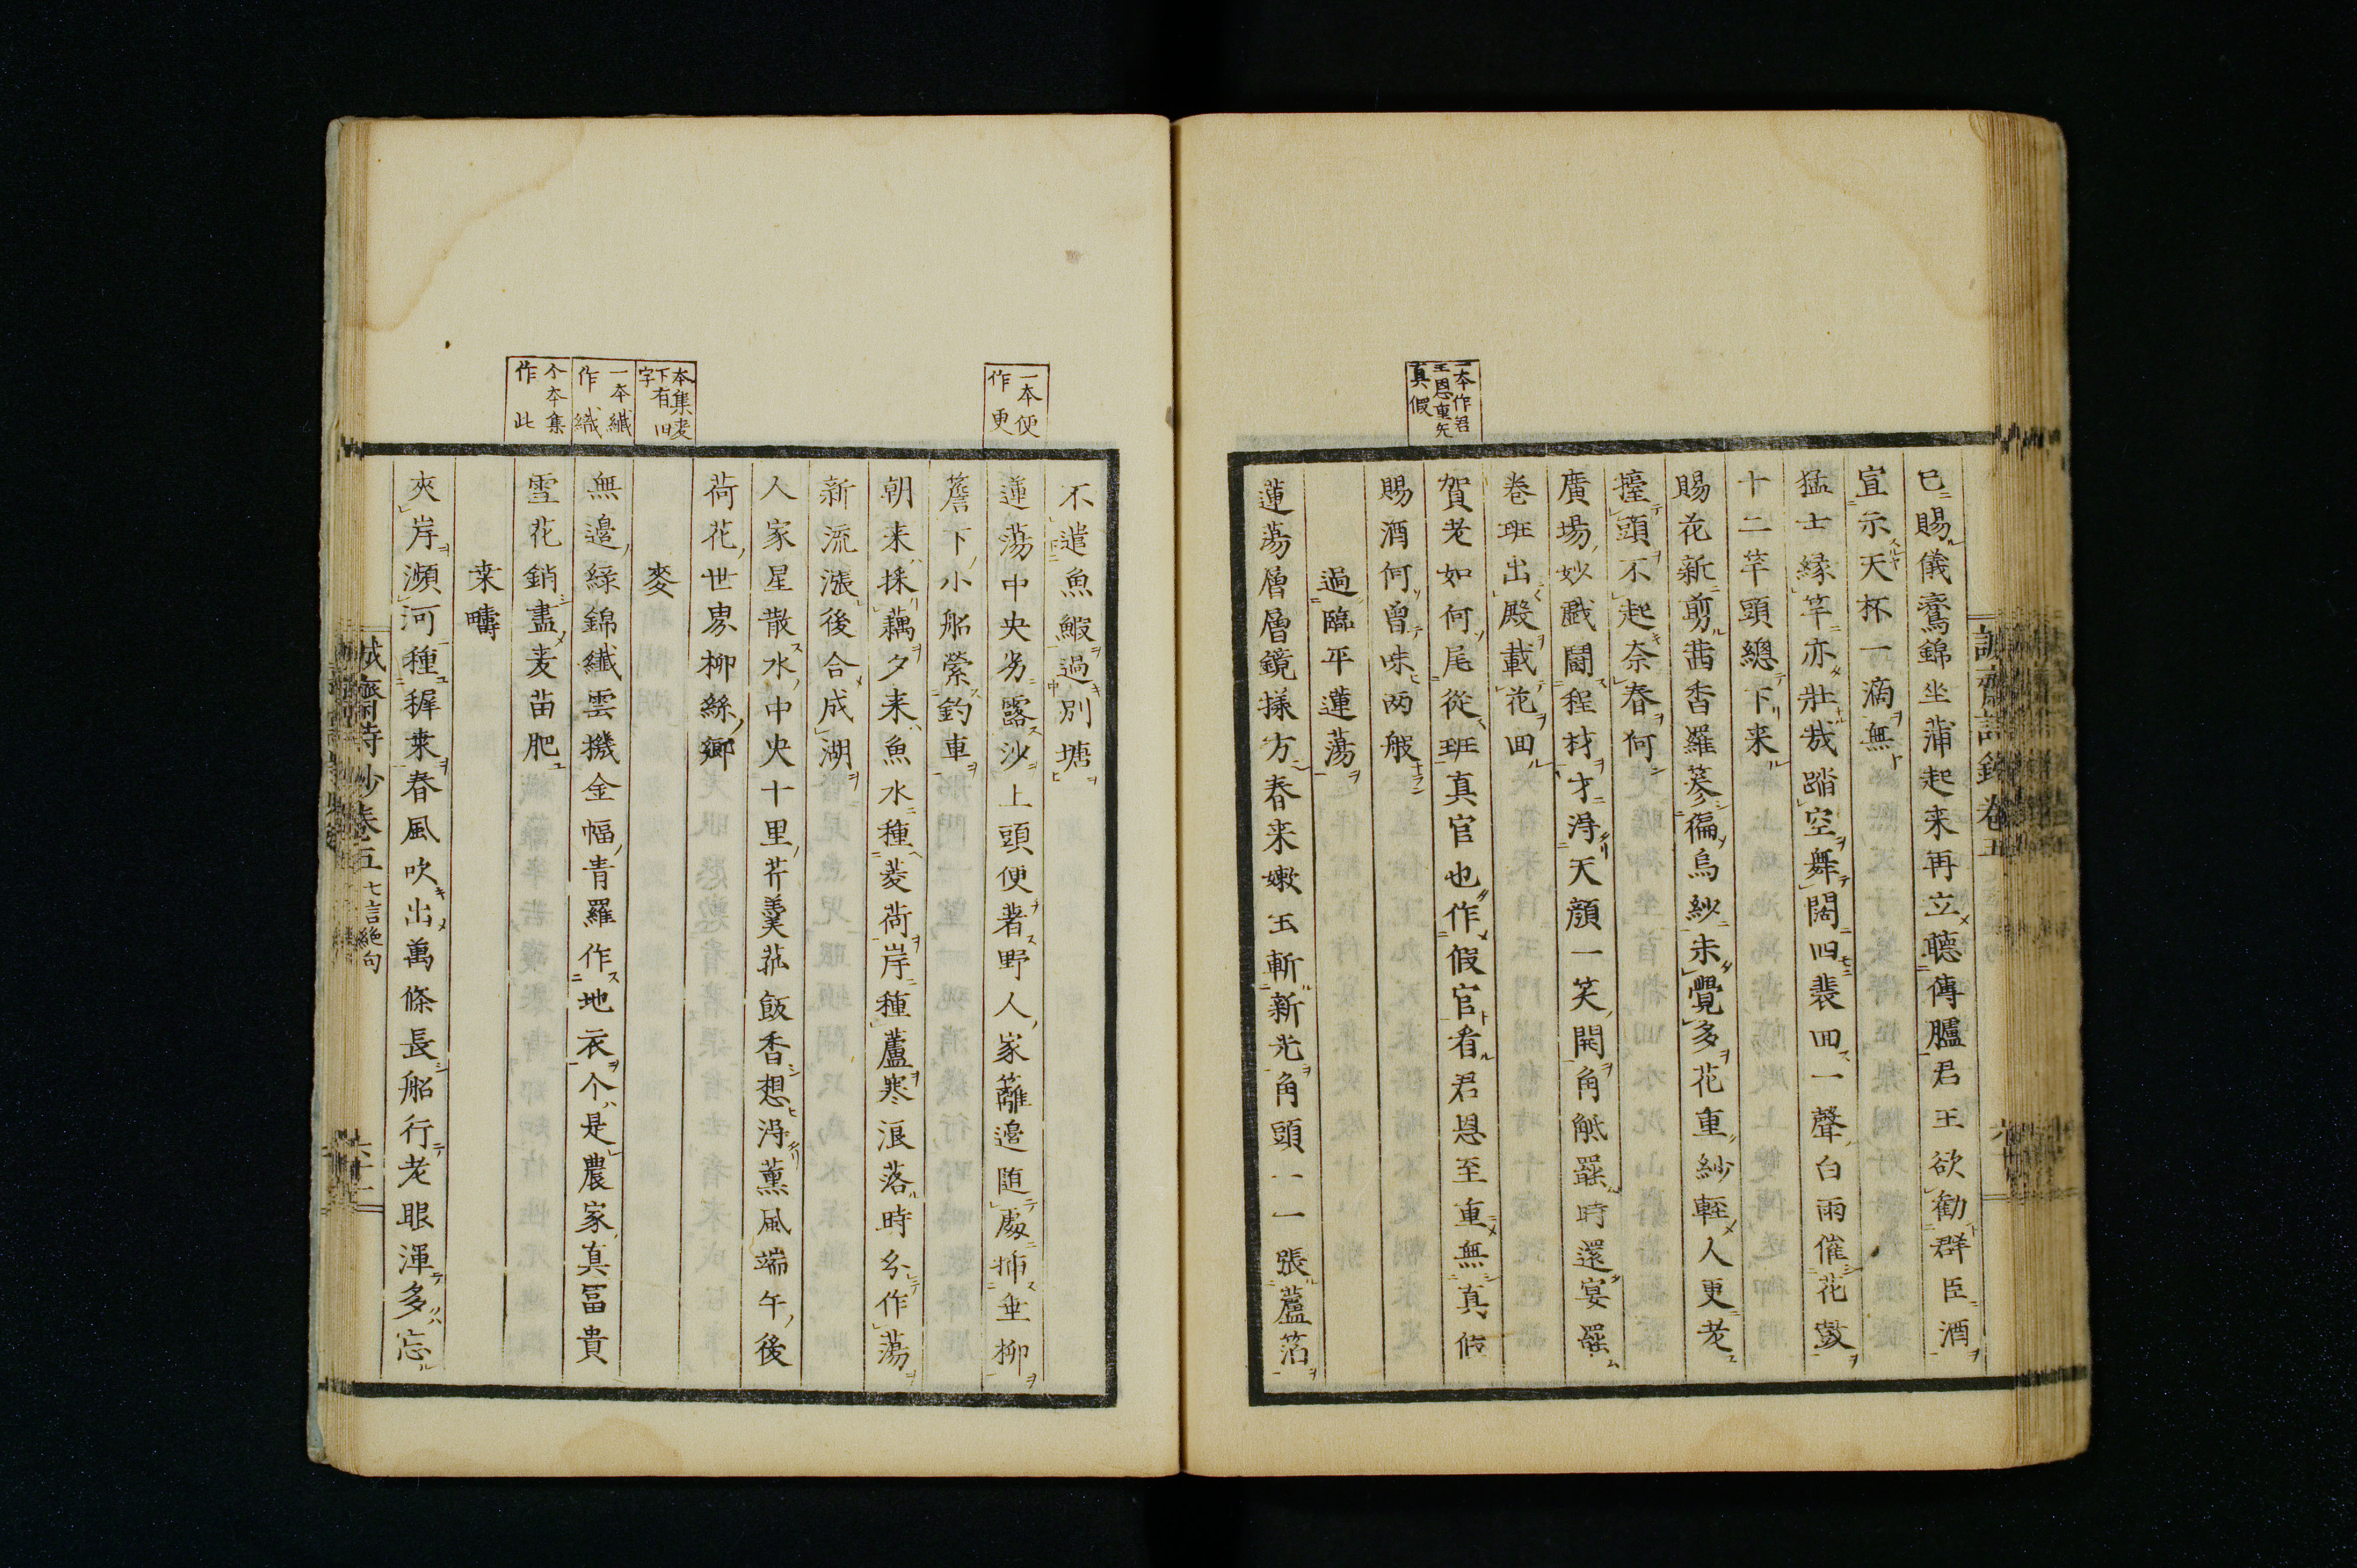 一本作君
王恩重无
真假
已賜儀鸞錦坐蒲起来再立聽傳臚君王欲勸群臣酒
宣示天杯一滴無
猛士緣竿亦壯哉踏空舞闊四裴回一聲白雨催花鼓
十二竿頭總下来
賜花新剪茜香羅篸徧烏紗未覺多花重紗輕人更老
擡頭不起奈春何
廣場妙戲鬪程材才淂天顔一笑開角觝罷時還宴罷
卷班出殿載花回
賀老如何尾從班真官也作假官看君恩至重無真假
賜酒何曽味两般
過臨平蓮蕩
蓮蕩層層鏡様方春来嫩玉斬新光角頭一一張蘆箔
不遣魚鰕過別塘
一本便
作更
蓮蕩中央劣露沙上頭便著野人家籬邉随處挿垂柳
簷下小船縈釣車
朝来採藕夕来魚水種菱荷岸種蘆寒浪落時分作蕩
新流漲後合成湖
人家星散水中央十里芹羹菰飯香想淂薫風端午後
荷花世界柳絲鄉
本集麦
下有田
字
麥
一本纎
作織
無邉綠錦纎雲機金幅青羅作地衣个是農家真冨貴
个本集
作此
雪花銷盡麦苗肥
桒疇
夾岸瀕河種穉桒春風吹出萬條長船行老眼渾多忘
誠齋詩鈔卷五 七言絶句